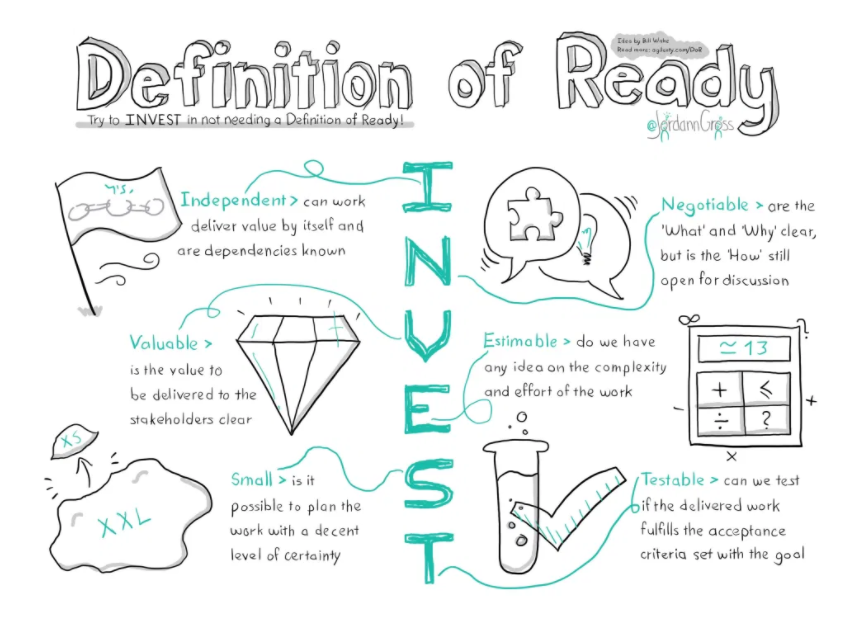 Definition of Ready
Idea by Bill Wake
Read more: agilasty.com/DoR
Try to INVEST in not needing a Definition of Ready!
@JordannGross
INVEST
Independent > can work
deliver value by itself and
are dependencies known
Negotiable > are the
'What' and 'Why' clear,
but is the 'How' still
open for discussion
Valuable >
is the value to
be delivered to the
stakeholders clear
Estimable > do we have
any idea on the complexity
and effort of the work
≃ 13
+ ≤
÷ ?
∞ ?
- +
x
XS
XXL
Small > is it
possible to plan the
work with a decent
level of certainty
Testable > can we test
if the delivered work
fulfills the acceptance
criteria set with the goal